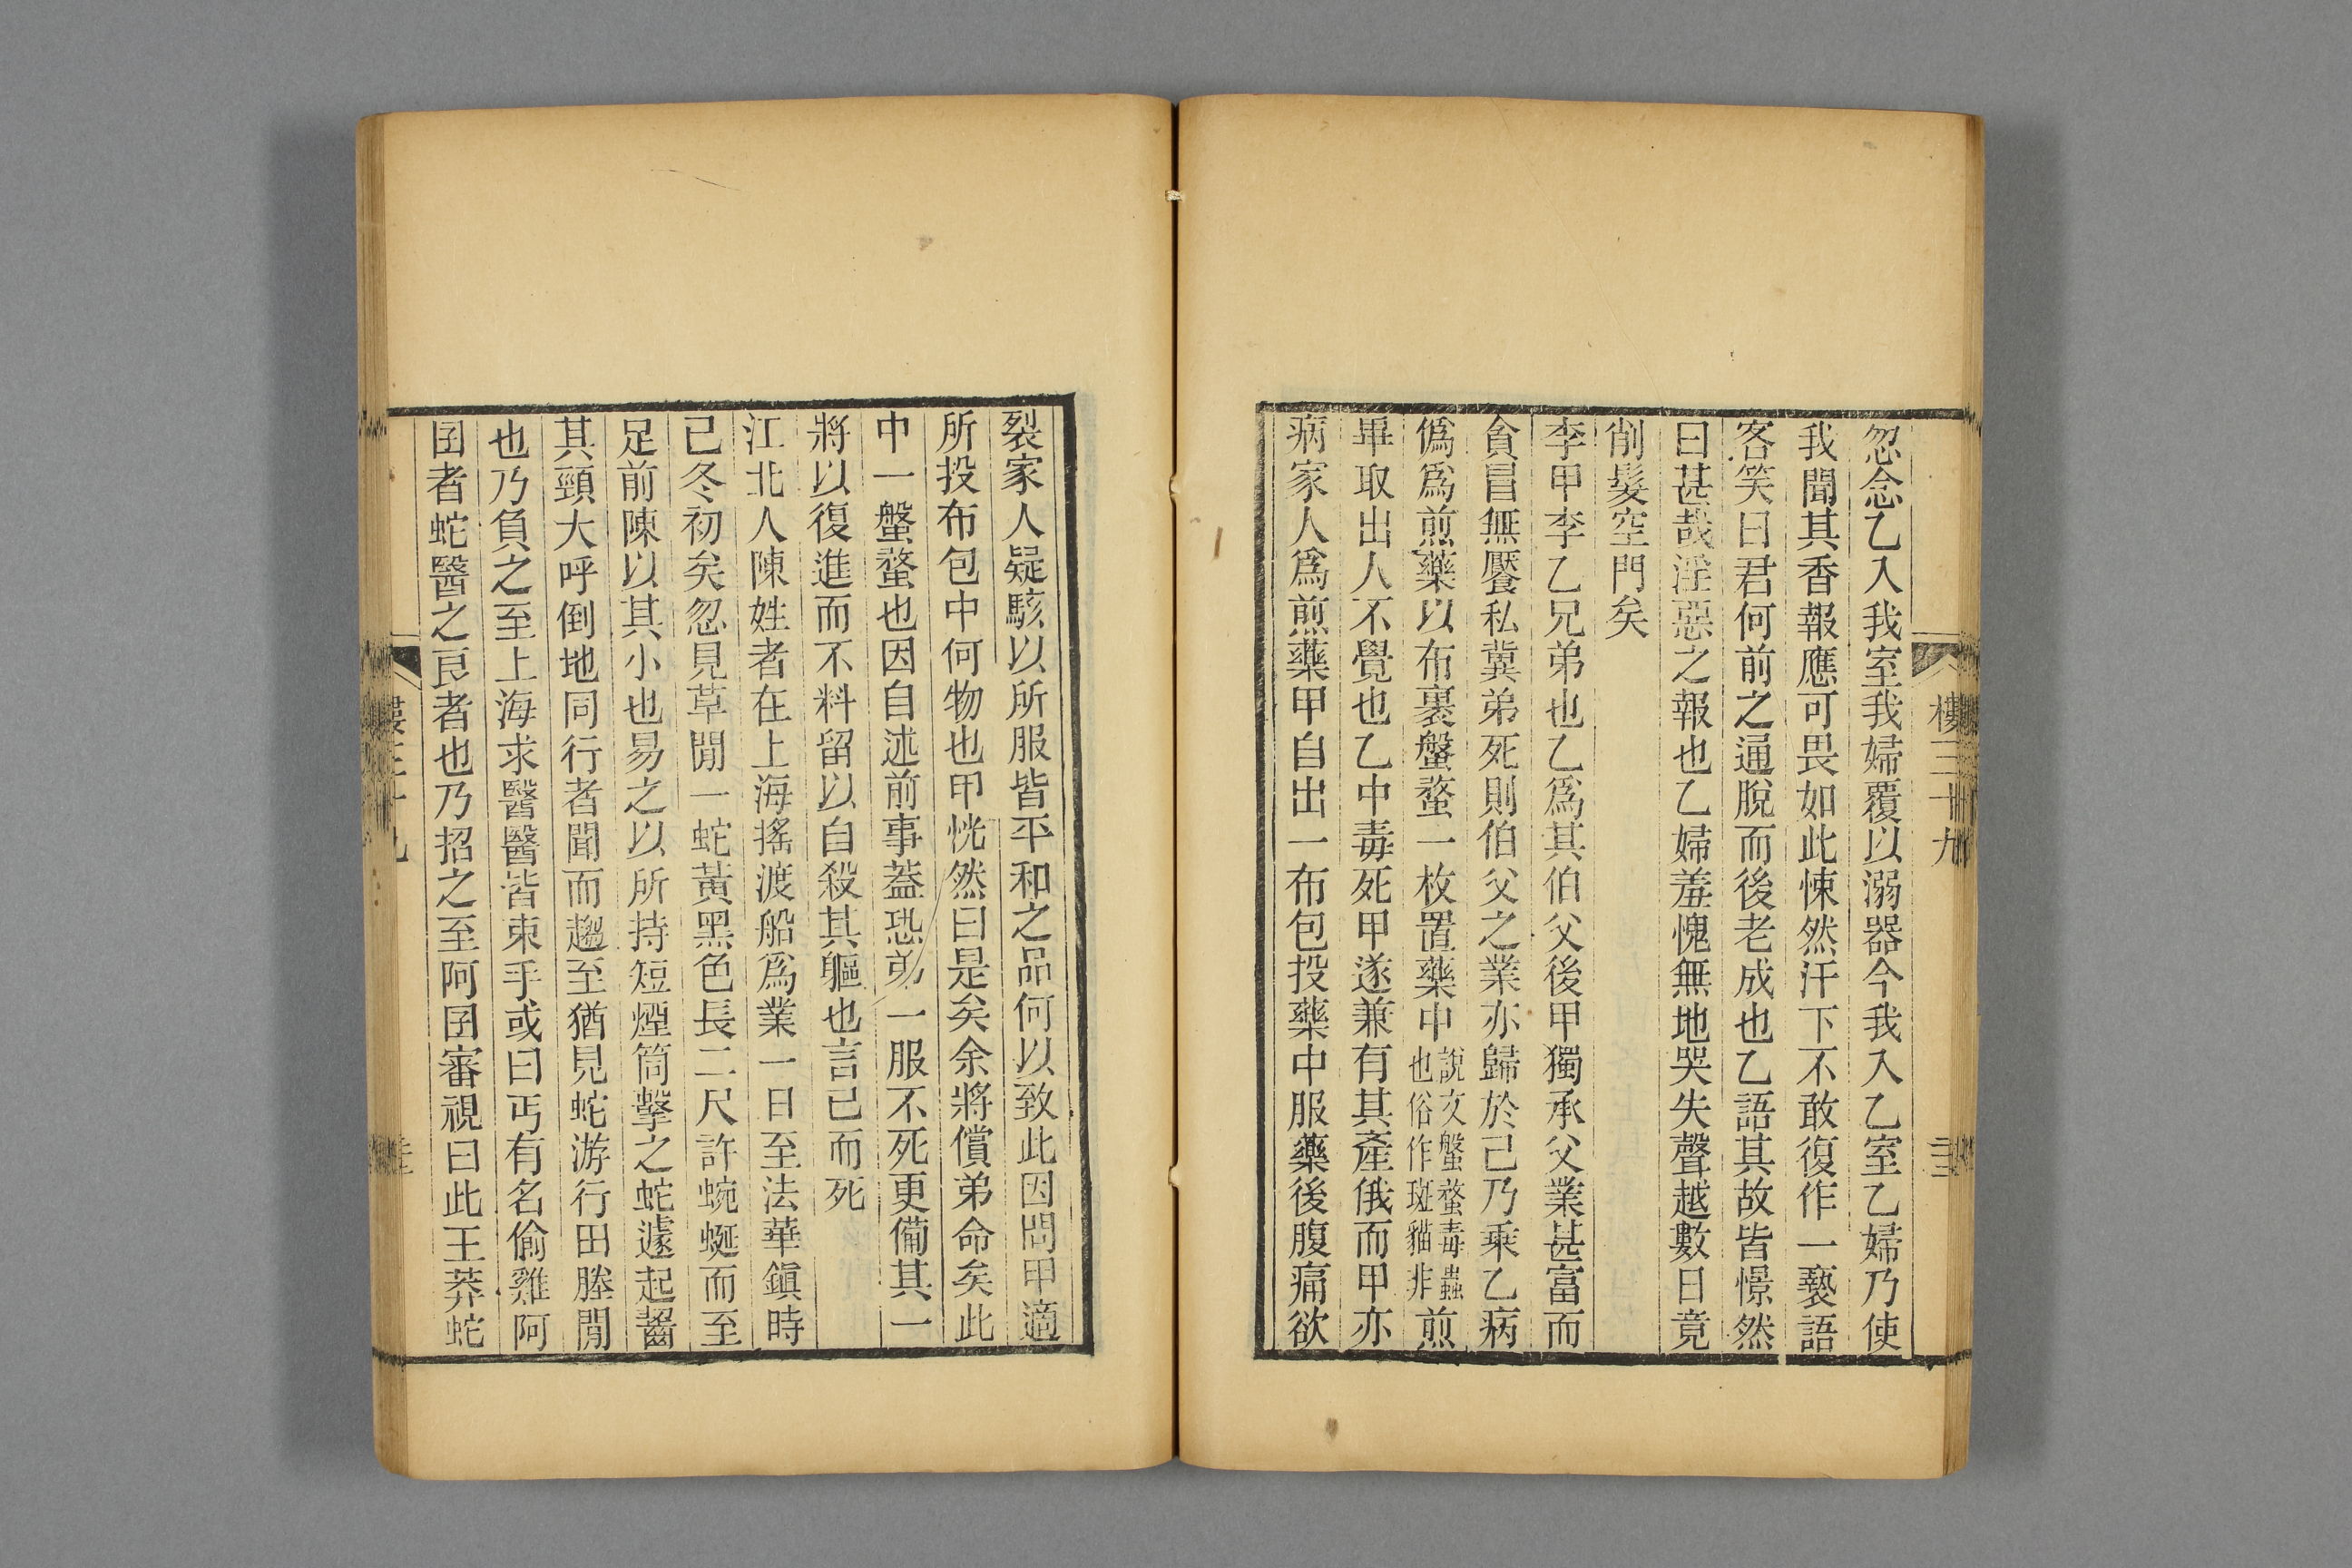 忽念乙入我室我婦覆以溺器今我入乙室乙婦乃使
我聞其香報應可畏如此悚然汗下不敢復作一褻語
客笑曰君何前之通脫而後老成也乙語其故皆憬然
曰甚哉淫惡之報也乙婦羞愧無地哭失聲越數日竟
削髮空門矣
李甲李乙兄弟也乙爲其伯父後甲獨承父業甚富而
貪冒無饜私冀弟死則伯父之業亦歸於己乃乘乙病
僞爲煎藥以布裹螌蝥一枚置藥中說文螌蝥毒蟲也俗作斑貓非煎
畢取出人不覺也乙中毒死甲遂兼有其產俄而甲亦
病家人爲煎藥甲自出一布包投藥中服藥後腹痛欲
樓三十九
裂家人疑駭以所服皆平和之品何以致此因問甲適
所投布包中何物也甲恍然曰是矣余將償弟命矣此
中一螌蝥也因自述前事蓋恐弟一服不死更備其一
將以復進而不料留以自殺其軀也言已而死
江北人陳姓者在上海搖渡船爲業一日至法華鎭時
已冬初矣忽見草閒一蛇黃黑色長二尺許蜿蜒而至
足前陳以其小也易之以所持短煙筒擊之蛇遽起齧
其頸大呼倒地同行者聞而趨至猶見蛇游行田塍閒
也乃負之至上海求醫醫皆束手或曰丐有名偷雞阿
囝者蛇醫之良者也乃招之至阿囝審視曰此王莽蛇
樓三十九